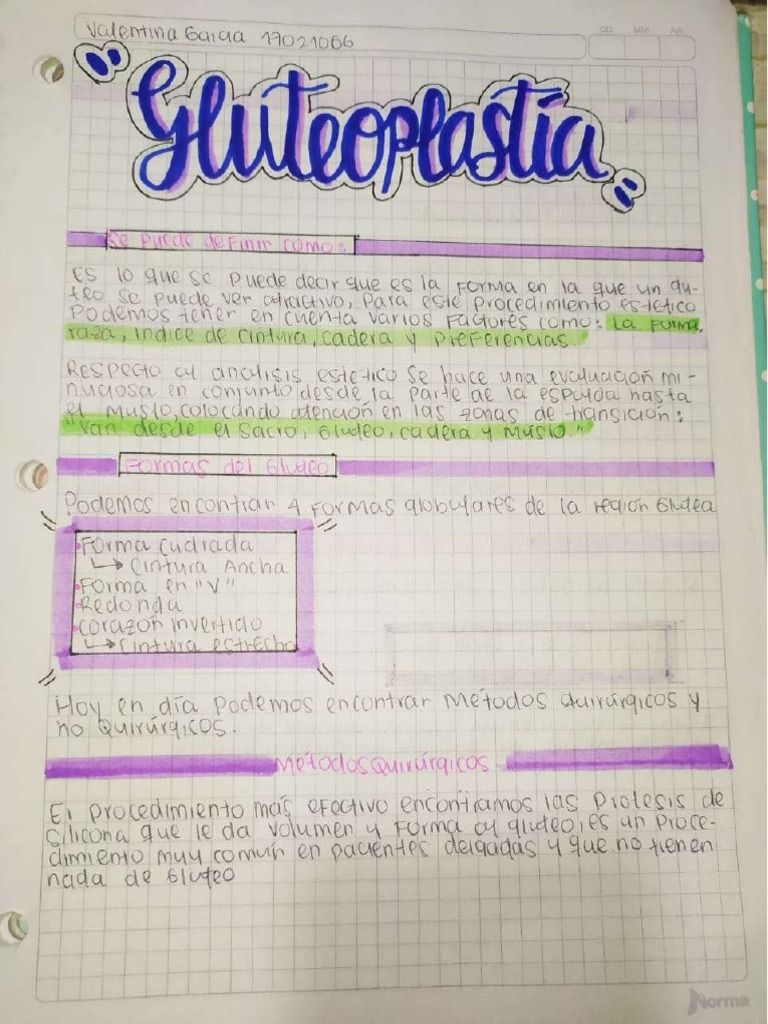 Valentina Garcia 17021066
DD MM AA
"Gluteoplastía"
Se puede definir como:
Es lo que se puede decir que es la forma en la que un glu-
teo se puede ver atractivo, para este procedimiento estetico
Podemos tener en cuenta varios factores como: la forma,
raza, indice de cintura, cadera y preferencias.
Respecto al analisis estetico se hace una evaluación mi-
nuciosa en conjunto desde la parte de la espalda hasta
el muslo, colocando atencion en las zonas de transición:
"Van desde el sacro, Gluteo, cadera y Muslo."
Formas del Gluteo
Podemos encontrar 4 formas globulares de la region Glutea
•Forma Cudrada
↳ Cintura Ancha
•Forma en "V"
•Redonda
•Corazón invertido
↳ Cintura estrecha
Hoy en día podemos encontrar Métodos Quirúrgicos y
no Quirúrgicos.
Métodos Quirúrgicos
El procedimiento más efectivo encontramos las Protesis de
Silicona que le da volumen y forma al gluteo, es un Proce-
dimiento muy común en pacientes delgadas y que no tienen
nada de Gluteo
Norma